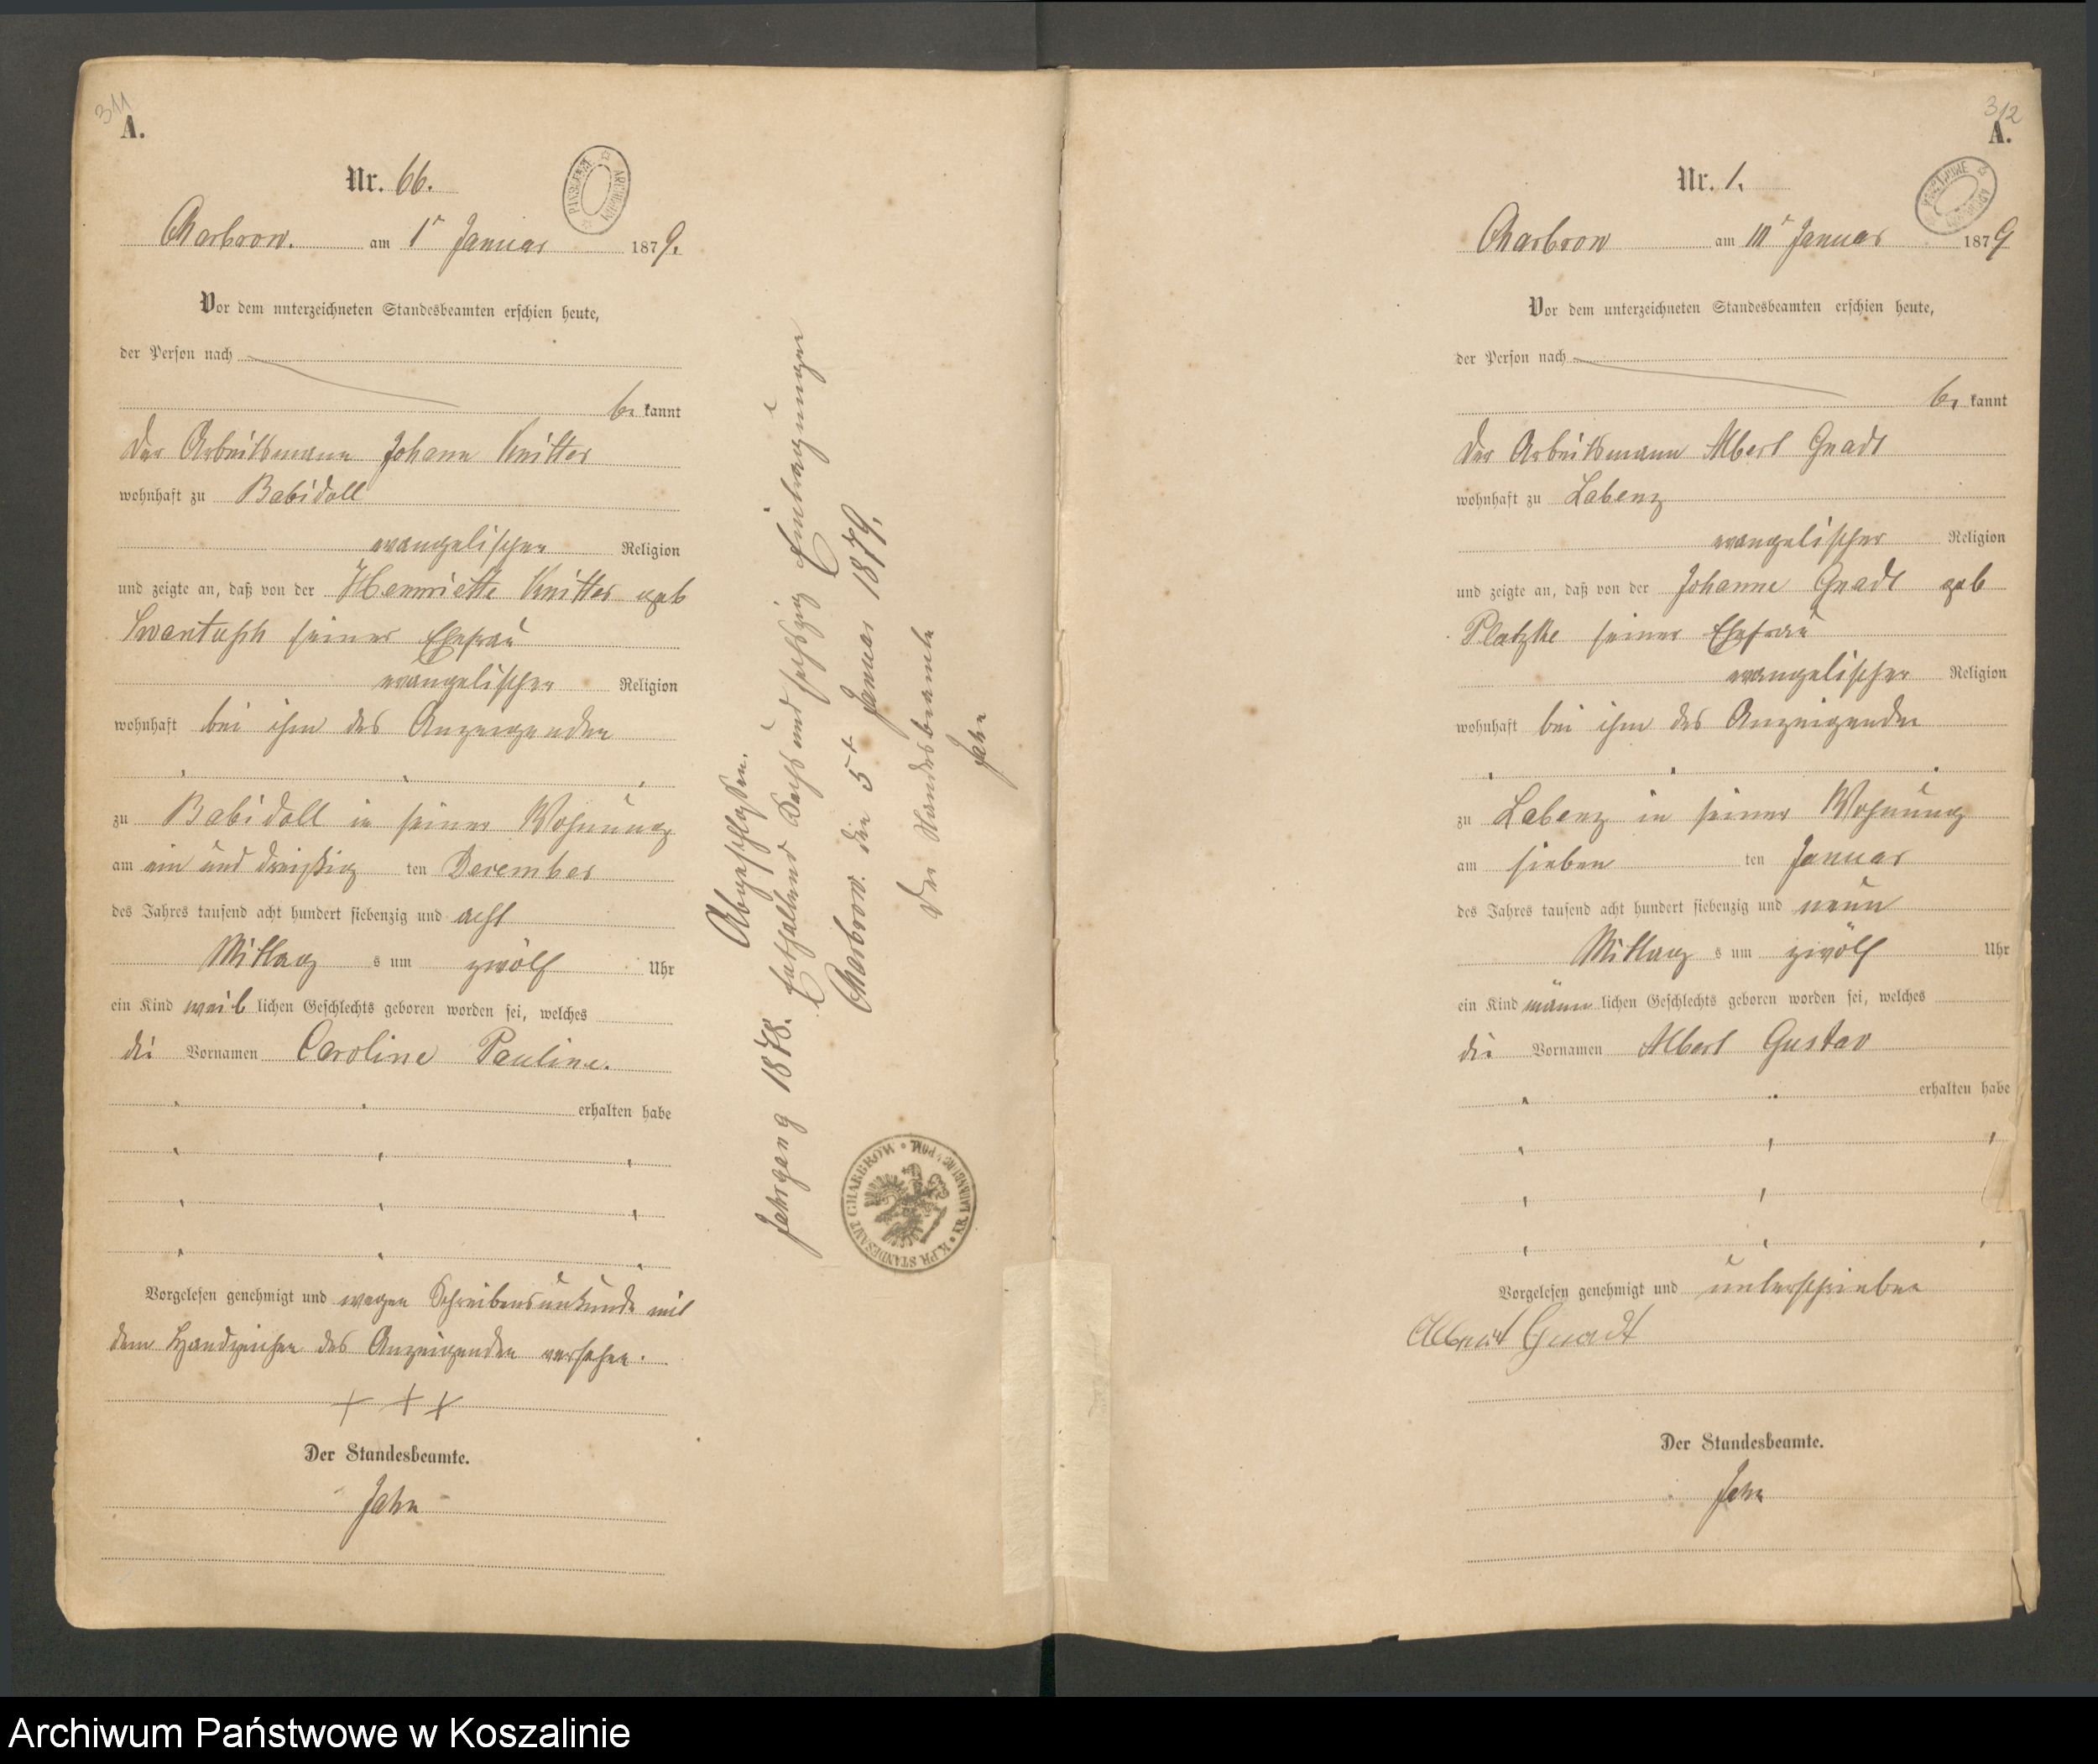 311
A.
Nr. 66.
Charbrow. am 1t Januar 1879.
Vor dem unterzeichneten Standesbeamten erschien heute,
der Person nach
be kannt
Der Arbeitsmann Johann Knitter
wohnhaft zu Babidoll
evangelischer Religion
und zeigte an, daß von der Henriette Knitter geb
Swantusch seiner Ehefrau
evangelischer Religion
wohnhaft bei ihm des Anzeigenden
zu Babidoll in seiner Wohnung
am ein und dreißig ten December
des Jahres tausend acht hundert siebenzig und acht
Mittag s um zwölf Uhr
ein Kind weib lichen Geschlechts geboren worden sei, welches
die Vornamen Caroline Pauline.
erhalten habe
Vorgelesen genehmigt und wegen Schreibensunkunde mit
dem Handzeichen des Anzeigenden versehen.
+ + +
Der Standesbeamte.
Jahn
Abgeschlossen.
Jahrgang 1878. Enthaltend Sechs und sechszig Eintragungen
Charbrow. den 5t Januar 1879.
Der Standesbeamte
Jahn
K. PR. STANDESAMT CHARBROW • POM.
312
A.
Nr. 1.
ARCHIWUM
Charbrow am 10t Januar 1879
Vor dem unterzeichneten Standesbeamten erschien heute,
der Person nach
be kannt
Der Arbeitsmann Albert Gnadt
wohnhaft zu Labenz
evangelischer Religion
und zeigte an, daß von der Johanne Gnadt geb
Platzke seiner Ehefrau
evangelischer Religion
wohnhaft bei ihm des Anzeigenden
zu Labenz in seiner Wohnung
am sieben ten Januar
des Jahres tausend acht hundert siebenzig und neun
Mittag s um zwölf Uhr
ein Kind männ lichen Geschlechts geboren worden sei, welches
die Vornamen Albert Gustav
erhalten habe
Vorgelesen genehmigt und unterschrieben
Albert Gnadt
Der Standesbeamte.
Jahn
Archiwum Państwowe w Koszalinie